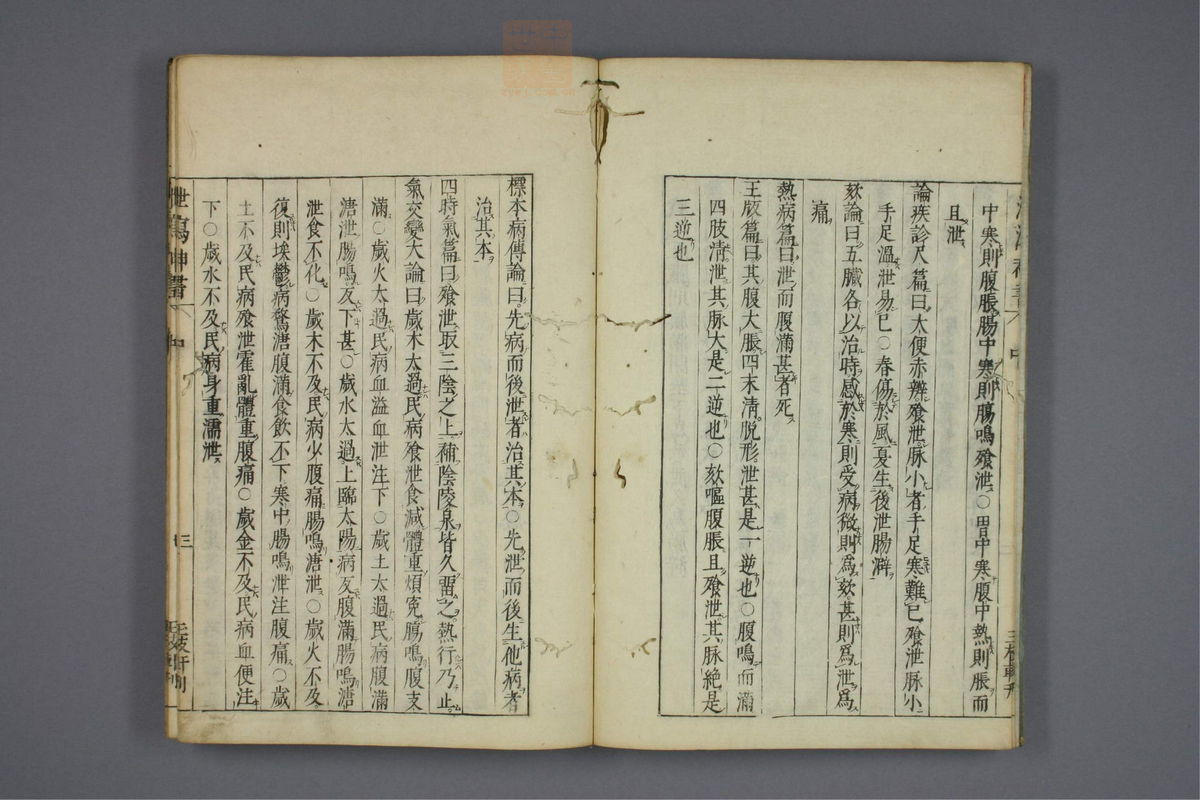 中寒則腹脹腸中寒則腸鳴飧泄○胃中寒腹中熱則脹而
且泄
論疾診尺篇曰大便赤瓣飧泄脉小者手足寒難已飧泄脉小
手足溫泄易已○春傷於風夏生後泄腸澼
欬論曰五臟各以治時感於寒則受病微則爲欬甚則爲泄爲
痛
熱病篇曰泄而腹滿甚者死
玉版篇曰其腹大脹四末淸脫形泄甚是一逆也○腹鳴而滿
四肢淸泄其脉大是二逆也○欬嘔腹脹且飧泄其脉絶是
三逆也
標本病傳論曰先病而後泄者治其本○先泄而後生他病者
治其本
四時氣篇曰飧泄取三陰之上補陰陵泉皆久留之熱行乃止
氣交變大論曰歲木太過民病飧泄食減體重煩寃腸鳴腹支
滿○歲火太過民病血溢血泄注下○歲土太過民病腹滿
溏泄腸鳴反下甚○歲水太過上臨太陽病反腹滿腸鳴溏
泄食不化○歲木不及民病少腹痛腸鳴溏泄○歲火不及
復則埃鬱病鶩溏腹滿食飮不下寒中腸鳴泄注腹痛○歲
土不及民病飧泄霍亂體重腹痛○歲金不及民病血便注
下○歲水不及民病身重濡泄
中
三